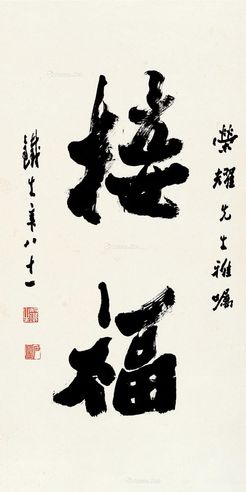 榮耀先生雅嘱
接福
鐵生年八十一